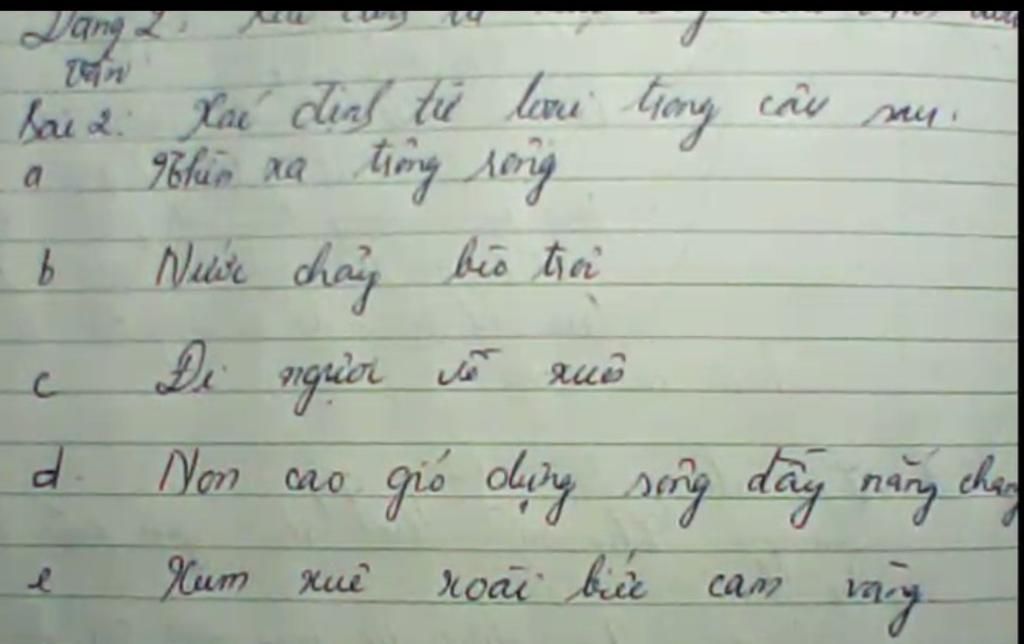 Dạng 2:
vần
Bài 2: Xác định từ loại trong câu sau.
a Nhìn xa trông rộng
b Nước chảy bèo trôi
c Đi ngược về xuôi
d. Non cao gió dựng sông đầy nắng chang
e Xum xuê xoài biếc cam vàng